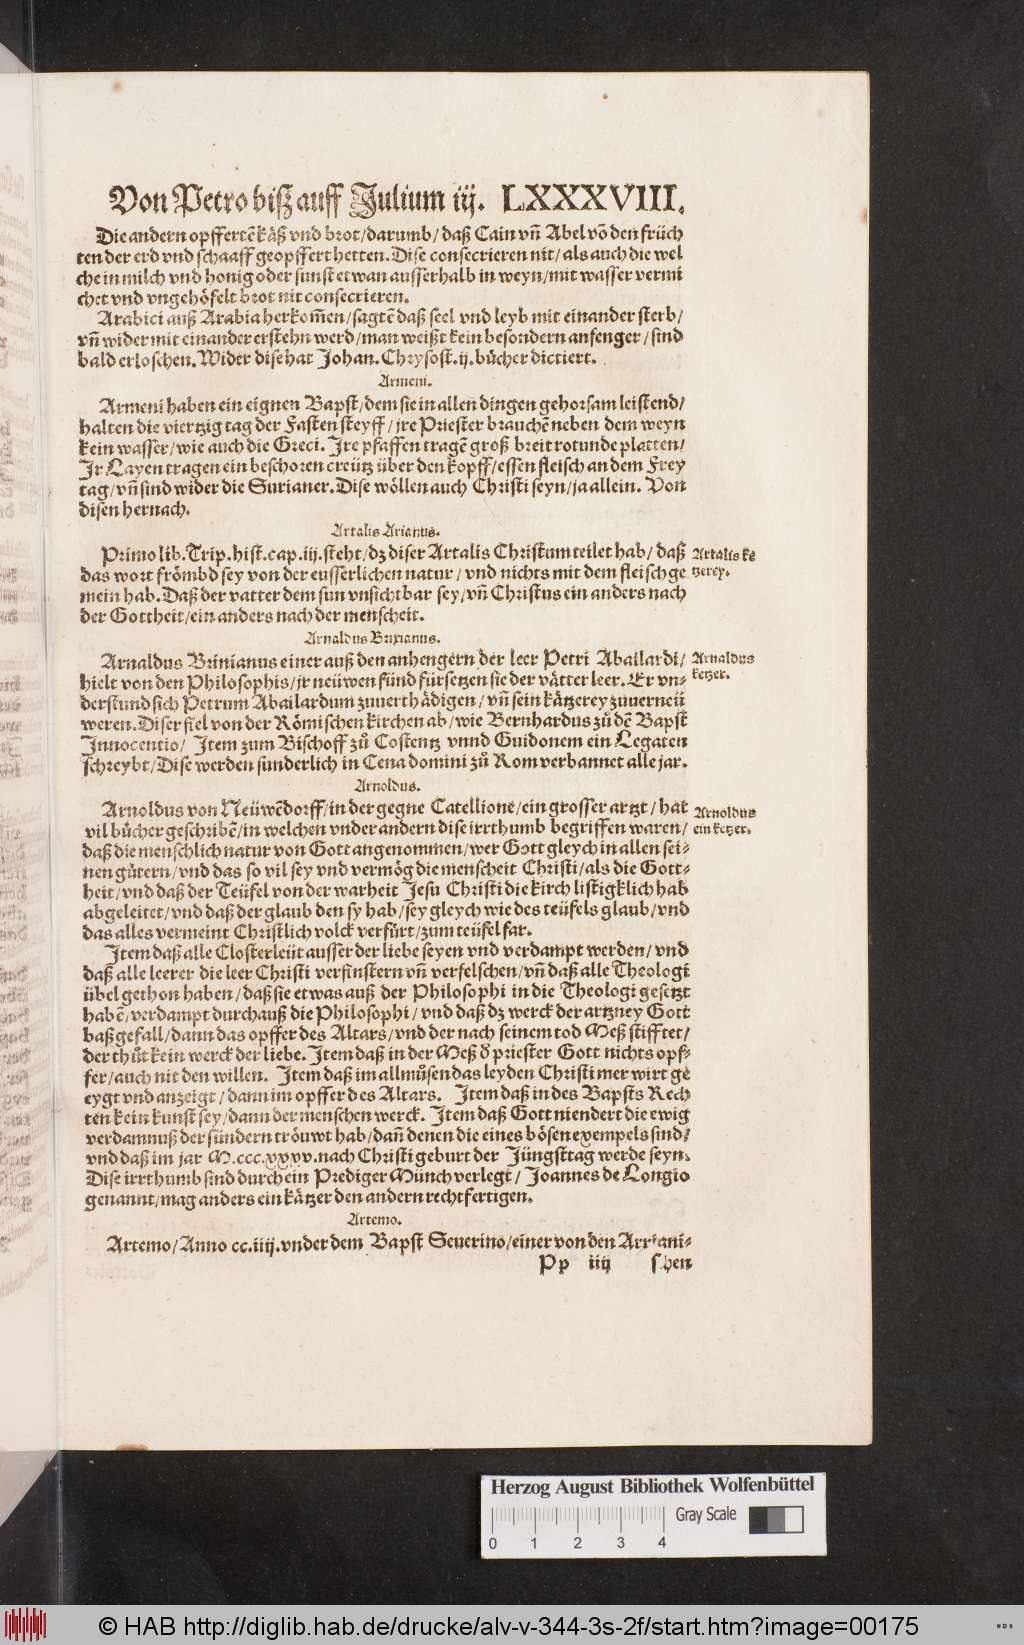 Von Petro biß auff Julium iij. LXXXVIII.
Die andern opffertē käß vnd brot/darumb/daß Cain vñ Abel võ den früch
ten der erd vnd schaaff geopffert hetten. Dise consecrieren nit/als auch die wel
che in milch vnd honig oder sunst etwan ausserhalb in weyn/mit wasser vermi
chet vnd vngehöfelt brot nit consecrieren.
Arabici auß Arabia herkom̃en/sagtē daß seel vnd leyb mit einander sterb/
vñ wider mit einander erstehn werd/man weißt kein besondern anfenger/sind
bald erloschen. Wider dise hat Johan. Chrysost. ij. bůcher dictiert.
Armeni.
Armeni haben ein eignen Bapst/dem sie in allen dingen gehorsam leistend/
halten die viertzig tag der Fasten steyff/jre Priester brauchē neben dem weyn
kein wasser/wie auch die Greci. Jre pfaffen tragē groß breit rotunde platten/
Jr Layen tragen ein beschoren creütz über den kopff/essen fleisch an dem Frey
tag/vñ sind wider die Surianer. Dise wöllen auch Christi seyn/ja allein. Von
disen hernach.
Artalis Arianus.
Primo lib. Trip. hist. cap. iij. steht/dz diser Artalis Christum teilet hab/daß
Artalis ke
das wort frömbd sey von der eusserlichen natur/vnd nichts mit dem fleisch ge
tzerey.
mein hab. Daß der vatter dem sun vnsichtbar sey/vñ Christus ein anders nach
der Gottheit/ein anders nach der menscheit.
Arnaldus Brixianus.
Arnaldus Brinianus einer auß den anhengern der leer Petri Abailardi/
Arnaldus
hielt von den Philosophis/jr neüwen fünd fürsetzen sie der vätter leer. Er vn-
ketzer.
derstund sich Petrum Abailardum zuuerthädigen/vñ sein kätzerey zuuerneü
weren. Diser fiel von der Römischen kirchen ab/wie Bernhardus zů dē Bapst
Innocentio/ Item zum Bischoff zů Costentz vnnd Guidonem ein Legaten
schreybt/Dise werden sunderlich in Cena domini zů Rom verbannet alle jar.
Arnoldus.
Arnoldus von Neüwēdorff/in der gegne Catellione/ein grosser artzt/hat
Arnoldus
vil bůcher geschribē/in welchen vnder andern dise irrthumb begriffen waren/
ein ketzer.
daß die menschlich natur von Gott angenommen/wer Gott gleych in allen sei-
nen gůtern/vnd das so vil sey vnd vermög die menscheit Christi/als die Gott-
heit/vnd daß der Teüfel von der warheit Jesu Christi die kirch listigklich hab
abgeleitet/vnd daß der glaub den sy hab/sey gleych wie des teüfels glaub/vnd
das alles vermeint Christlich volck verfürt/zum teüfel far.
Item daß alle Closterleüt ausser der liebe seyen vnd verdampt werden/vnd
daß alle leerer die leer Christi verfinstern vñ verfelschen/vñ daß alle Theologi
übel gethon haben/daß sie etwas auß der Philosophi in die Theologi gesetzt
habē/verdampt durchauß die Philosophi/vnd daß dz werck der artzney Gott
baß gefall/dann das opffer des Altars/vnd der nach seinem tod Meß stifftet/
der thůt kein werck der liebe. Item daß in der Meß ð priester Gott nichts opf-
fer/auch nit den willen. Item daß im allmůsen das leyden Christi mer wirt ge
eygt vnd anzeigt/dann im opffer des Altars. Item daß in des Bapsts Rech
ten kein kunst sey/dann der menschen werck. Item daß Gott niendert die ewig
verdamnuß der sündern tröuwt hab/dañ denen die eines bösen exempels sind/
vnd daß im jar M.ccc.xxxv. nach Christi geburt der Jüngsttag werde seyn.
Dise irrthumb sind durch ein Prediger Münch verlegt/Joannes de Longio
genannt/mag anders ein kätzer den andern rechtfertigen.
Artemo.
Artemo/Anno cc.iiij. vnder dem Bapst Seuerino/einer von den Arriani-
Pp iiij schen
Herzog August Bibliothek Wolfenbüttel
Gray Scale
0 1 2 3 4
© HAB http://diglib.hab.de/drucke/alv-v-344-3s-2f/start.htm?image=00175